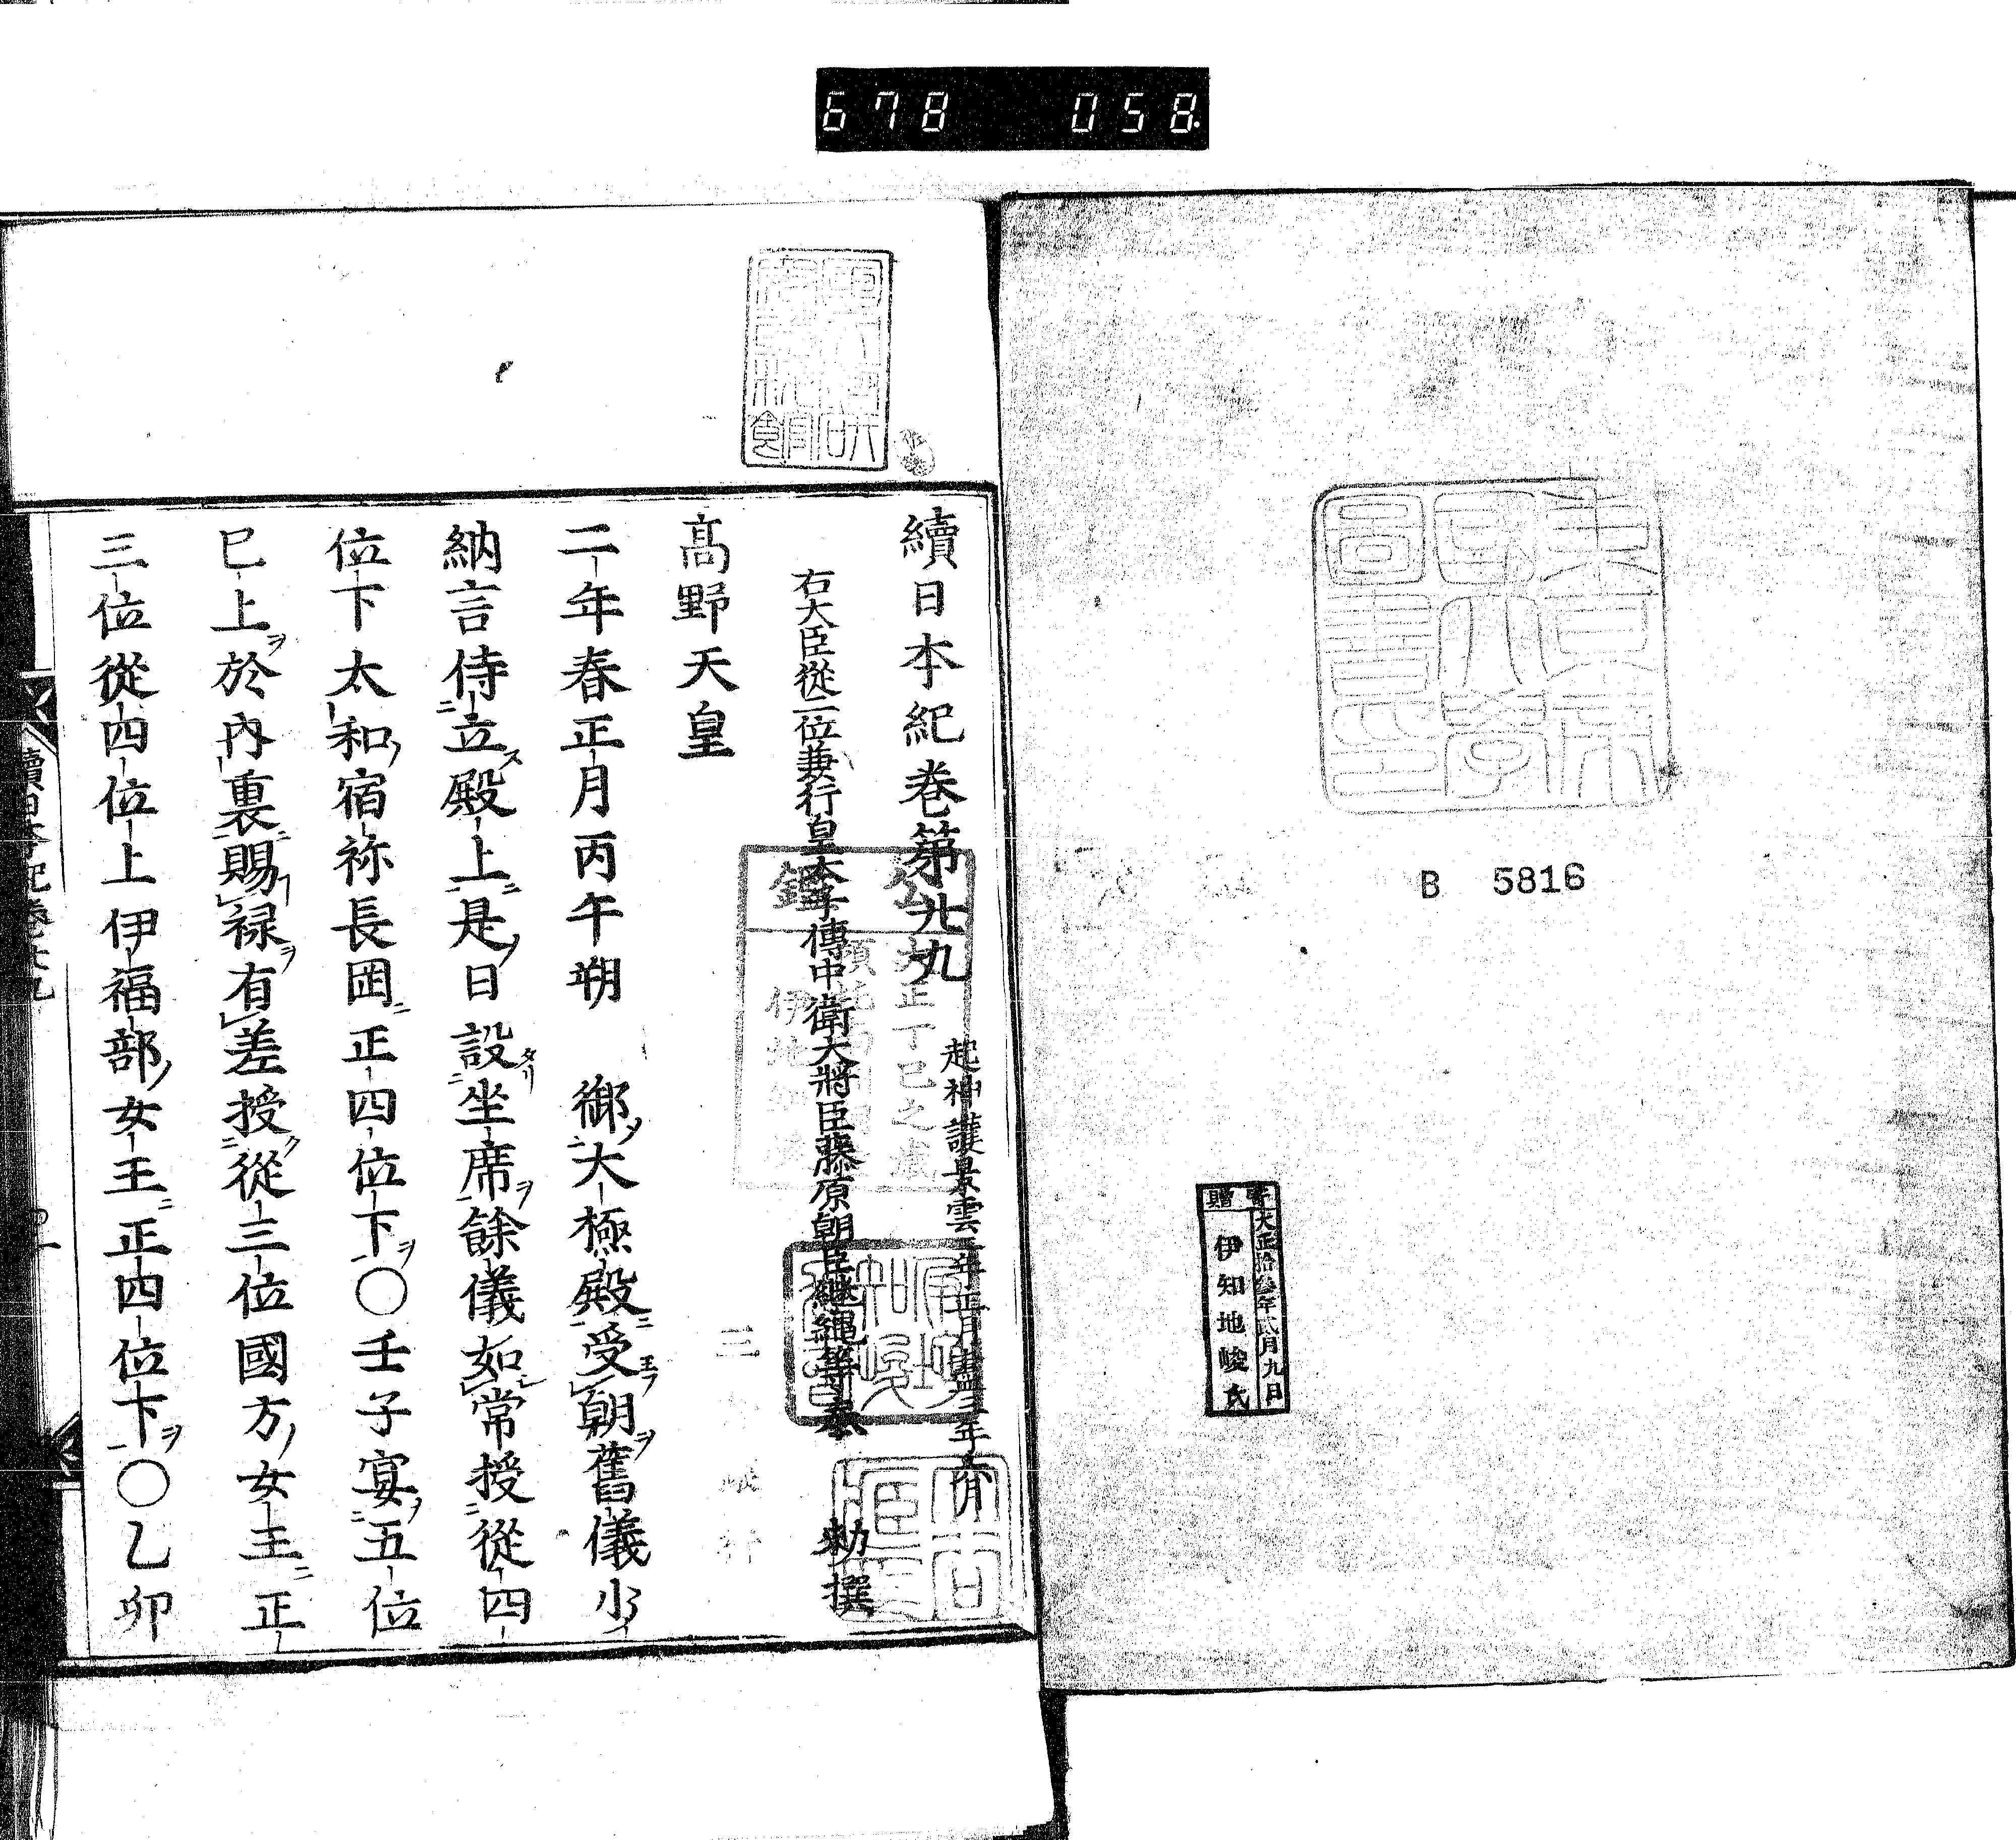 678 058
東京帝國大學圖書印
B 5816
寄贈
大正拾參年貳月九日
伊知地峻氏
續日本紀卷第廿九 起神護景雲二年正月盡三年六月
右大臣從二位兼行皇太子傳中衛大將臣藤原朝臣繼繩等奉 勅撰
髙野天皇
二年春正月丙午朔 御大極殿受朝舊儀少
納言侍立殿上是日設坐席餘儀如常授從四
位下太和宿祢長岡正四位下○壬子宴五位
巳上於內裏賜禄有差授從三位國方女王正
三位從四位上伊福部女王正四位下○乙卯
續日本紀卷廿九